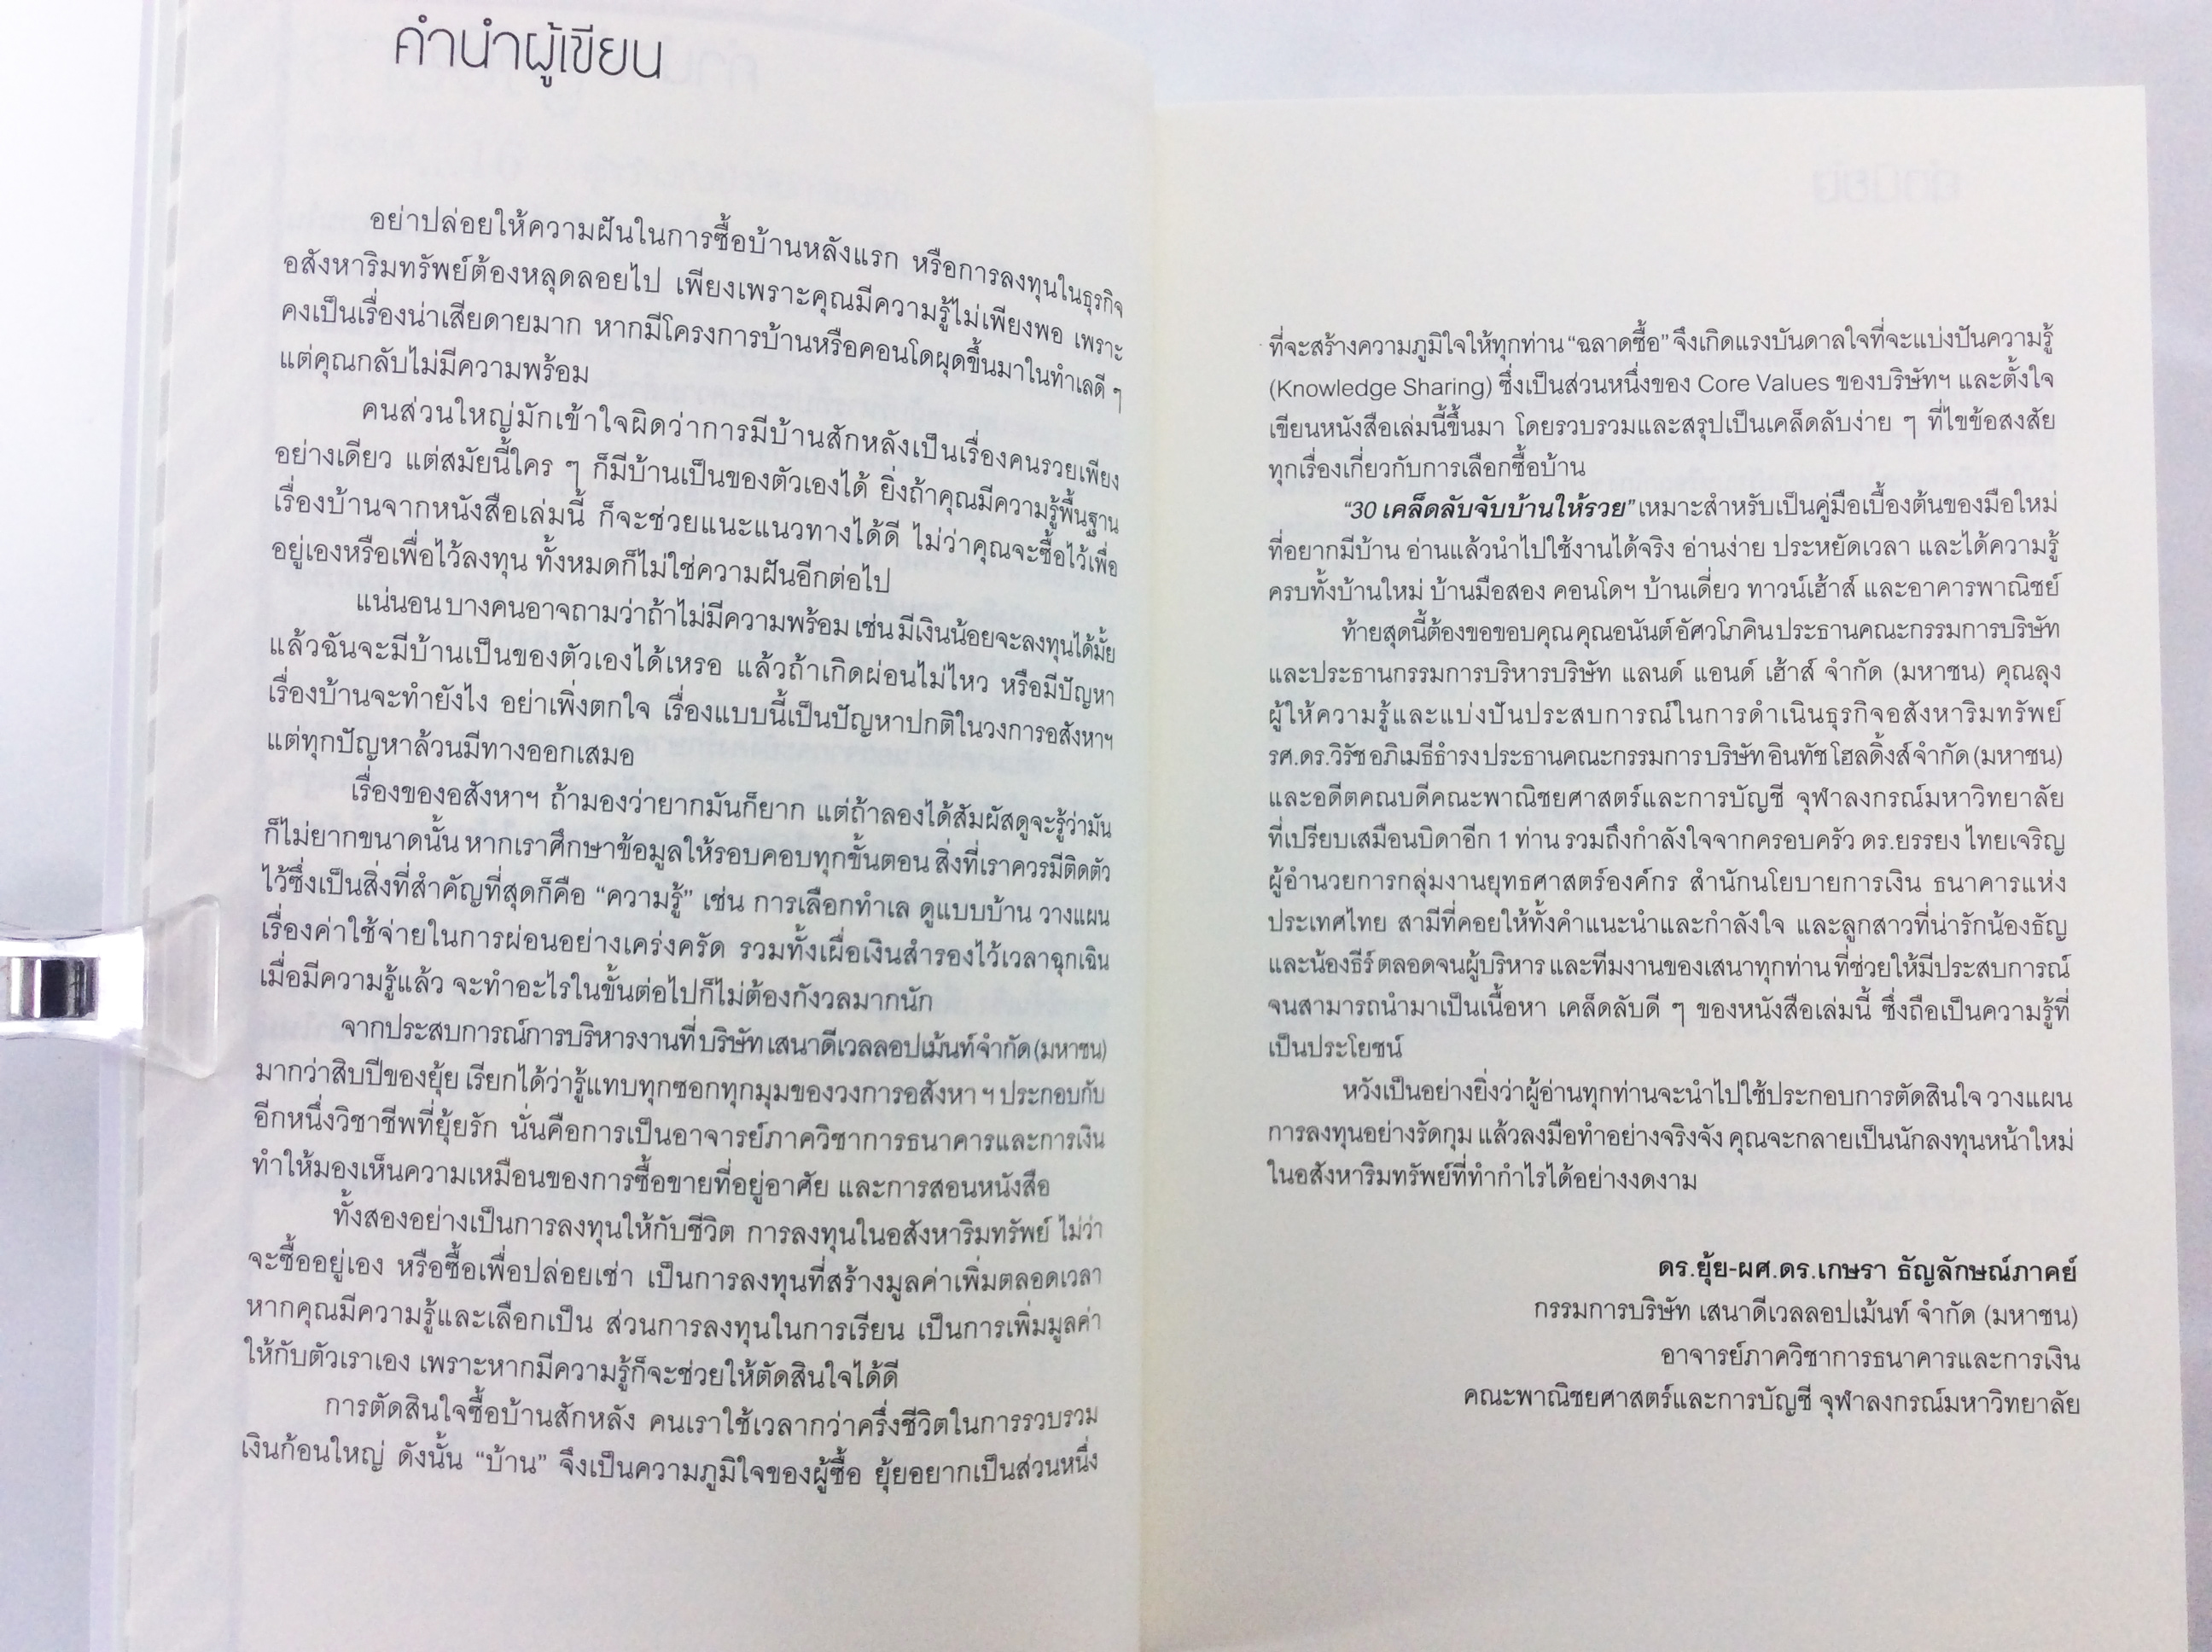 คำนำผู้เขียน
อย่าปล่อยให้ความฝันในการซื้อบ้านหลังแรก หรือการลงทุนในธุรกิจ
อสังหาริมทรัพย์ต้องหลุดลอยไป เพียงเพราะคุณมีความรู้ไม่เพียงพอ เพราะ
คงเป็นเรื่องน่าเสียดายมาก หากมีโครงการบ้านหรือคอนโดผุดขึ้นมาในทำเลดี ๆ
แต่คุณกลับไม่มีความพร้อม
คนส่วนใหญ่มักเข้าใจผิดว่าการมีบ้านสักหลังเป็นเรื่องคนรวยเพียง
อย่างเดียว แต่สมัยนี้ใคร ๆ ก็มีบ้านเป็นของตัวเองได้ ยิ่งถ้าคุณมีความรู้พื้นฐาน
เรื่องบ้านจากหนังสือเล่มนี้ ก็จะช่วยแนะแนวทางได้ดี ไม่ว่าคุณจะซื้อไว้เพื่อ
อยู่เองหรือเพื่อไว้ลงทุน ทั้งหมดก็ไม่ใช่ความฝันอีกต่อไป
แน่นอน บางคนอาจถามว่าถ้าไม่มีความพร้อม เช่น มีเงินน้อยจะลงทุนได้มั้ย
แล้วฉันจะมีบ้านเป็นของตัวเองได้เหรอ แล้วถ้าเกิดผ่อนไม่ไหว หรือมีปัญหา
เรื่องบ้านจะทำยังไง อย่าเพิ่งตกใจ เรื่องแบบนี้เป็นปัญหาปกติในวงการอสังหาฯ
แต่ทุกปัญหาล้วนมีทางออกเสมอ
เรื่องของอสังหาฯ ถ้ามองว่ายากมันก็ยาก แต่ถ้าลองได้สัมผัสดูจะรู้ว่ามัน
ก็ไม่ยากขนาดนั้น หากเราศึกษาข้อมูลให้รอบคอบทุกขั้นตอน สิ่งที่เราควรมีติดตัว
ไว้ซึ่งเป็นสิ่งที่สำคัญที่สุดก็คือ “ความรู้” เช่น การเลือกทำเล ดูแบบบ้าน วางแผน
เรื่องค่าใช้จ่ายในการผ่อนอย่างเคร่งครัด รวมทั้งเผื่อเงินสำรองไว้เวลาฉุกเฉิน
เมื่อมีความรู้แล้ว จะทำอะไรในขั้นต่อไปก็ไม่ต้องกังวลมากนัก
จากประสบการณ์การบริหารงานที่ บริษัท เสนาดีเวลลอปเม้นท์ จำกัด (มหาชน)
มากว่าสิบปีของยุ้ย เรียกได้ว่ารู้แทบทุกซอกทุกมุมของวงการอสังหา ฯ ประกอบกับ
อีกหนึ่งวิชาชีพที่ยุ้ยรัก นั่นคือการเป็นอาจารย์ภาควิชาการธนาคารและการเงิน
ทำให้มองเห็นความเหมือนของการซื้อขายที่อยู่อาศัย และการสอนหนังสือ
ทั้งสองอย่างเป็นการลงทุนให้กับชีวิต การลงทุนในอสังหาริมทรัพย์ ไม่ว่า
จะซื้ออยู่เอง หรือซื้อเพื่อปล่อยเช่า เป็นการลงทุนที่สร้างมูลค่าเพิ่มตลอดเวลา
หากคุณมีความรู้และเลือกเป็น ส่วนการลงทุนในการเรียน เป็นการเพิ่มมูลค่า
ให้กับตัวเราเอง เพราะหากมีความรู้ก็จะช่วยให้ตัดสินใจได้ดี
การตัดสินใจซื้อบ้านสักหลัง คนเราใช้เวลากว่าครึ่งชีวิตในการรวบรวม
เงินก้อนใหญ่ ดังนั้น “บ้าน” จึงเป็นความภูมิใจของผู้ซื้อ ยุ้ยอยากเป็นส่วนหนึ่ง
ที่จะสร้างความภูมิใจให้ทุกท่าน “ฉลาดซื้อ” จึงเกิดแรงบันดาลใจที่จะแบ่งปันความรู้
(Knowledge Sharing) ซึ่งเป็นส่วนหนึ่งของ Core Values ของบริษัทฯ และตั้งใจ
เขียนหนังสือเล่มนี้ขึ้นมา โดยรวบรวมและสรุปเป็นเคล็ดลับง่าย ๆ ที่ไขข้อสงสัย
ทุกเรื่องเกี่ยวกับการเลือกซื้อบ้าน
“30 เคล็ดลับจับบ้านให้รวย” เหมาะสำหรับเป็นคู่มือเบื้องต้นของมือใหม่
ที่อยากมีบ้าน อ่านแล้วนำไปใช้งานได้จริง อ่านง่าย ประหยัดเวลา และได้ความรู้
ครบทั้งบ้านใหม่ บ้านมือสอง คอนโดฯ บ้านเดี่ยว ทาวน์เฮ้าส์ และอาคารพาณิชย์
ท้ายสุดนี้ต้องขอขอบคุณ คุณอนันต์ อัศวโภคิน ประธานคณะกรรมการบริษัท
และประธานกรรมการบริหารบริษัท แลนด์ แอนด์ เฮ้าส์ จำกัด (มหาชน) คุณลุง
ผู้ให้ความรู้และแบ่งปันประสบการณ์ในการดำเนินธุรกิจอสังหาริมทรัพย์
รศ.ดร.วิรัช อภิเมธีธำรง ประธานคณะกรรมการ บริษัท อินทัช โฮลดิ้งส์ จำกัด (มหาชน)
และอดีตคณบดีคณะพาณิชยศาสตร์และการบัญชี จุฬาลงกรณ์มหาวิทยาลัย
ที่เปรียบเสมือนบิดาอีก 1 ท่าน รวมถึงกำลังใจจากครอบครัว ดร.ยรรยง ไทยเจริญ
ผู้อำนวยการกลุ่มงานยุทธศาสตร์องค์กร สำนักนโยบายการเงิน ธนาคารแห่ง
ประเทศไทย สามีที่คอยให้ทั้งคำแนะนำและกำลังใจ และลูกสาวที่น่ารักน้องธัญ
และน้องธีร์ ตลอดจนผู้บริหาร และทีมงานของเสนาทุกท่าน ที่ช่วยให้มีประสบการณ์
จนสามารถนำมาเป็นเนื้อหา เคล็ดลับดี ๆ ของหนังสือเล่มนี้ ซึ่งถือเป็นความรู้ที่
เป็นประโยชน์
หวังเป็นอย่างยิ่งว่าผู้อ่านทุกท่านจะนำไปใช้ประกอบการตัดสินใจ วางแผน
การลงทุนอย่างรัดกุม แล้วลงมือทำอย่างจริงจัง คุณจะกลายเป็นนักลงทุนหน้าใหม่
ในอสังหาริมทรัพย์ที่ทำกำไรได้อย่างงดงาม
ดร.ยุ้ย-ผศ.ดร.เกษรา ธัญลักษณ์ภาคย์
กรรมการบริษัท เสนาดีเวลลอปเม้นท์ จำกัด (มหาชน)
อาจารย์ภาควิชาการธนาคารและการเงิน
คณะพาณิชยศาสตร์และการบัญชี จุฬาลงกรณ์มหาวิทยาลัย